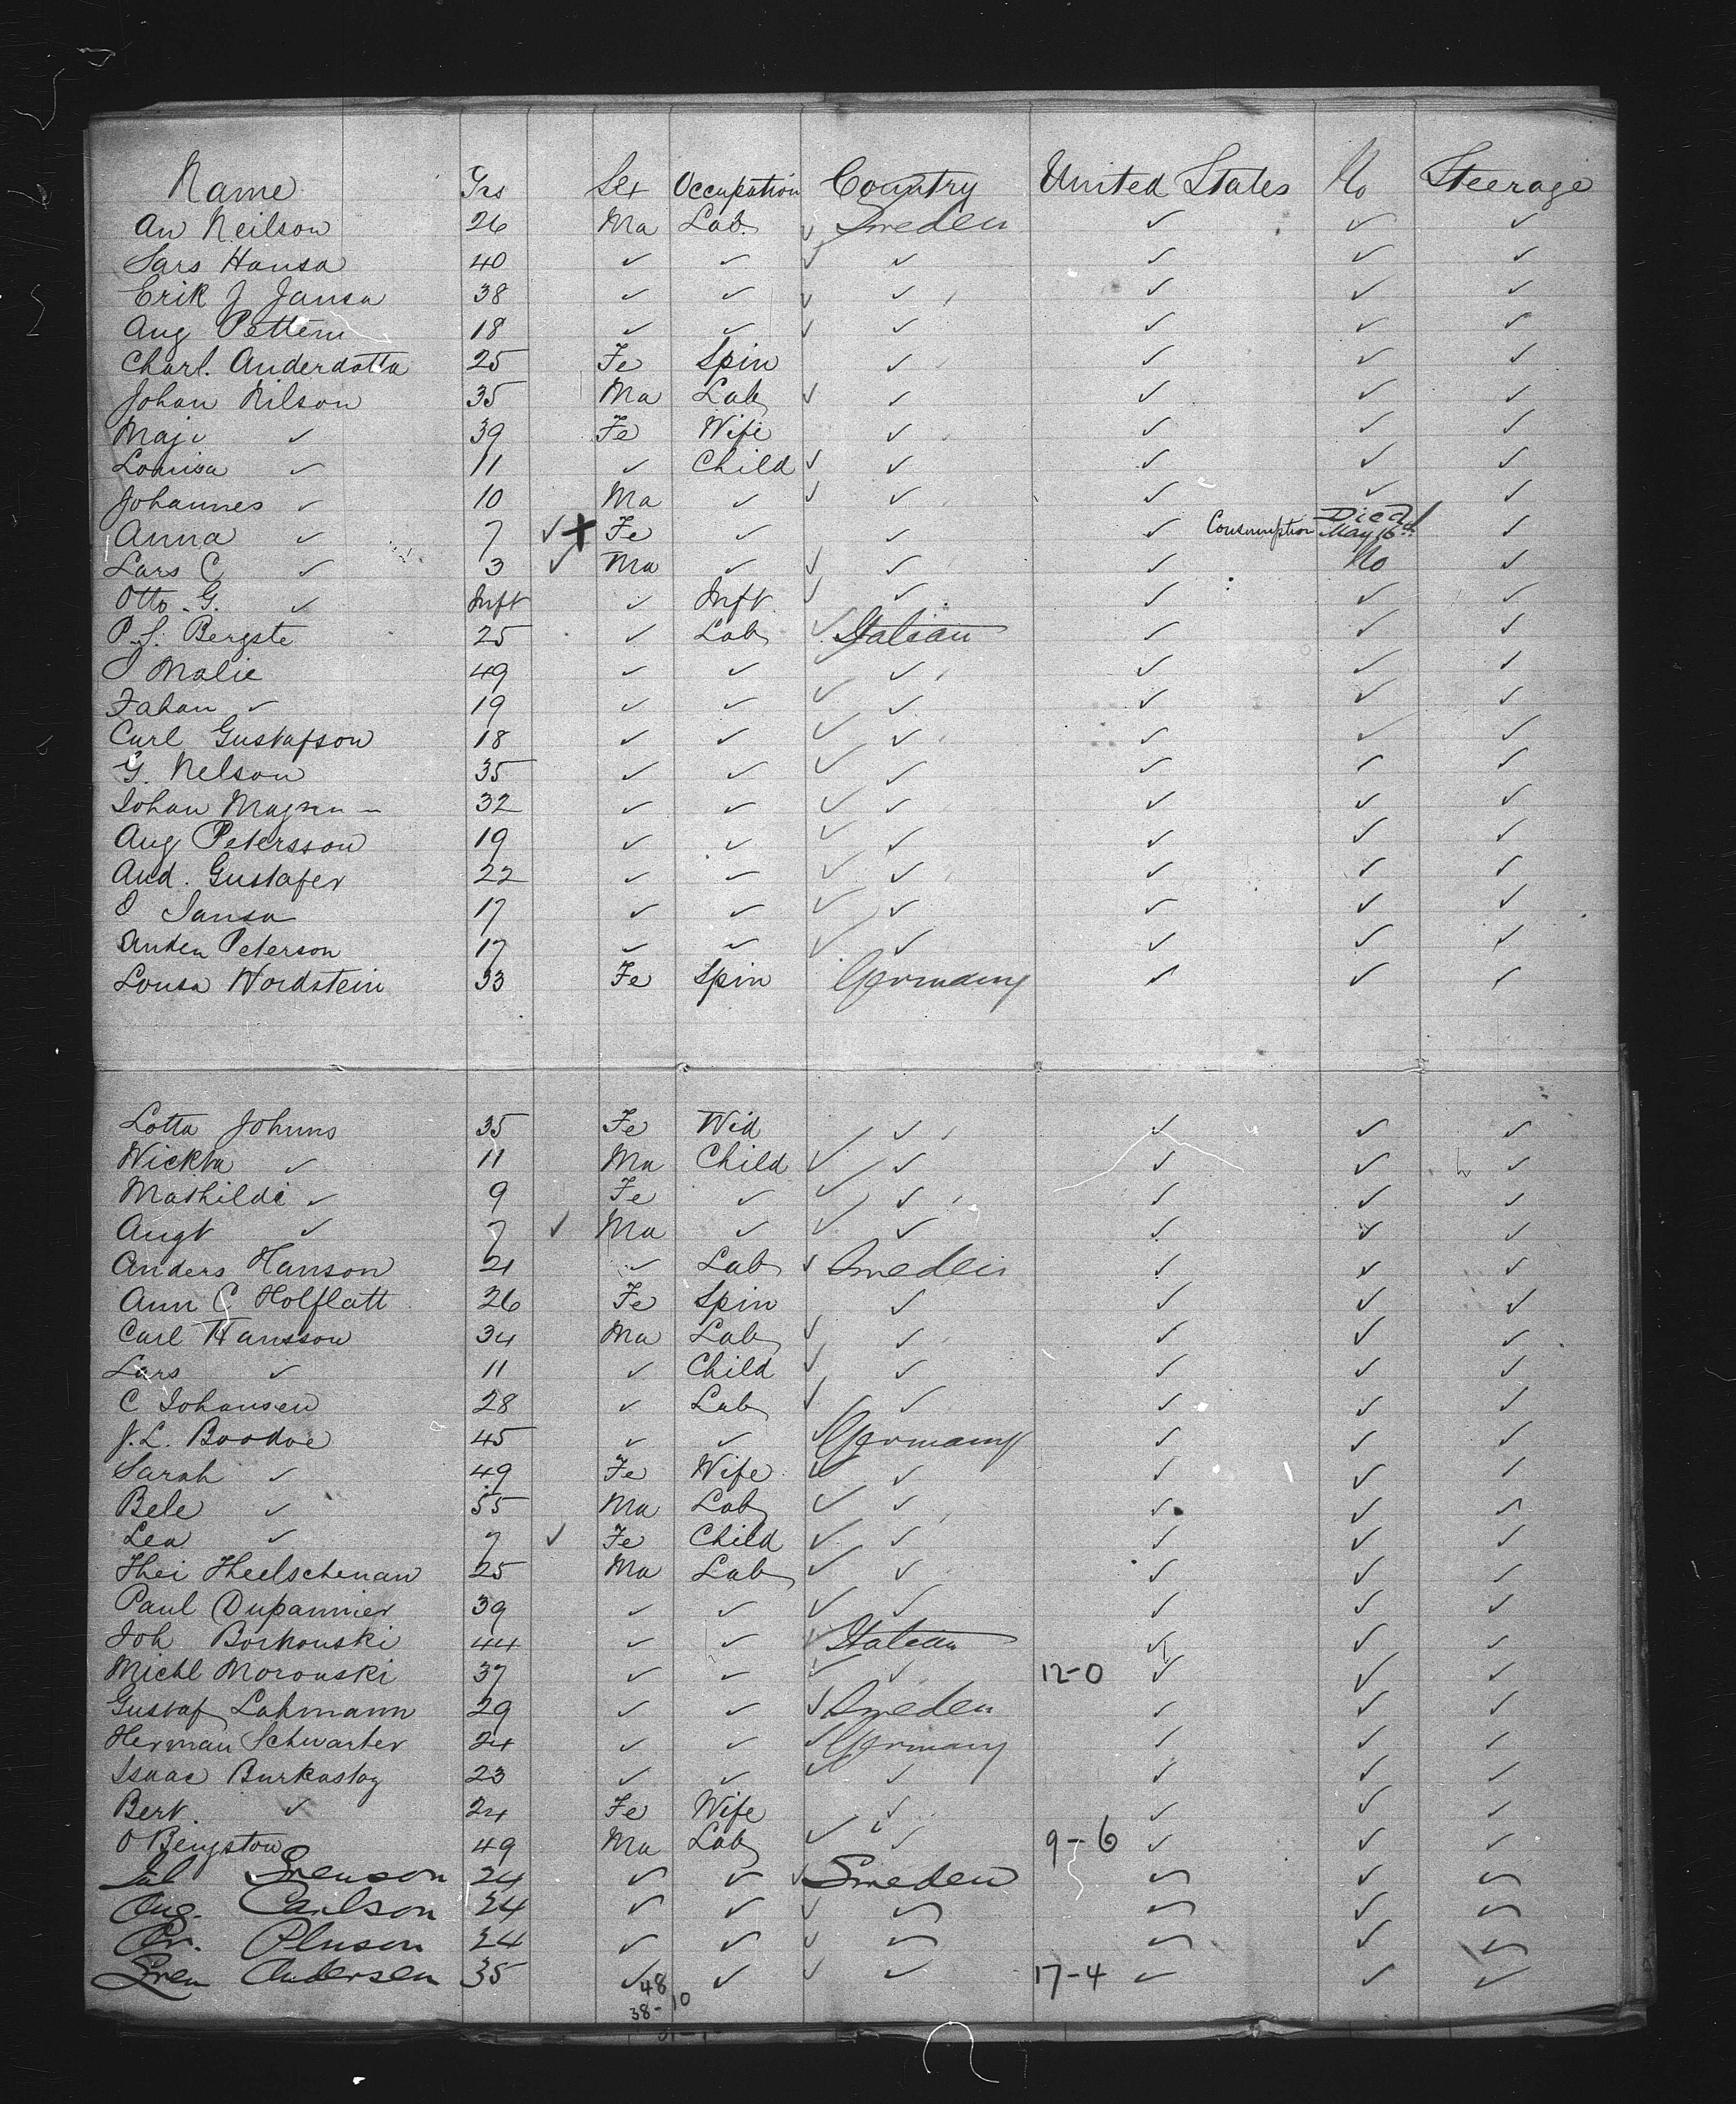 Name Yrs Sex Occupation Country United States No Steerage
An Neilson 26 Ma Lab. ✓ Sweden ✓ ✓ ✓
Lars Hansa 40 ✓ ✓ ✓ ✓ ✓ ✓ ✓
Erik J Jansa 38 ✓ ✓ ✓ ✓ ✓ ✓ ✓
Aug Pettern 18 ✓ ✓ ✓ ✓ ✓ ✓ ✓
Charl. Anderdotta 25 Fe Spin ✓ ✓ ✓ ✓
Johan Nilson 35 Ma Lab ✓ ✓ ✓ ✓ ✓
Maji ✓ 39 Fe Wife ✓ ✓ ✓ ✓
Louisa ✓ 11 ✓ Child ✓ ✓ ✓ ✓ ✓
Johannes ✓ 10 Ma ✓ ✓ ✓ ✓ ✓ ✓
Anna ✓ 7 ✓ + Fe ✓ ✓ ✓ Consumption Died May 16th ✓
Lars C ✓ 3 ✓ Ma ✓ ✓ ✓ ✓ No ✓
Otto. G. ✓ Inft ✓ Inft. ✓ ✓ ✓ ✓ ✓
P. S. Bergste 25 ✓ Lab ✓ Italian ✓ ✓ ✓
I Malie 49 ✓ ✓ ✓ ✓ ✓ ✓ ✓
Fahan ✓ 19 ✓ ✓ ✓ ✓ ✓ ✓ ✓
Carl Gustafson 18 ✓ ✓ ✓ ✓ ✓ ✓ ✓
G. Nelson 35 ✓ ✓ ✓ ✓ ✓ ✓ ✓
Johan Magnu — 32 ✓ ✓ ✓ ✓ ✓ ✓ ✓
Aug Petersson 19 ✓ ✓ ✓ ✓ ✓ ✓ ✓
And. Gustafer 22 ✓ ✓ ✓ ✓ ✓ ✓ ✓
J Jansa 17 ✓ ✓ ✓ ✓ ✓ ✓ ✓
Anden Peterson 17 ✓ ✓ ✓ ✓ ✓ ✓ ✓
Lousa Nordstein 33 Fe Spin Germany ✓ ✓ ✓
Lotta Johnns 35 Fe Wid ✓ ✓ ✓ ✓ ✓
Wickta ✓ 11 Ma Child ✓ ✓ ✓ ✓ ✓
Mathilde ✓ 9 Fe ✓ ✓ ✓ ✓ ✓ ✓
Augt ✓ 7 ✓ Ma ✓ ✓ ✓ ✓ ✓ ✓
Anders Hanson 21 ✓ Lab ✓ Sweden ✓ ✓ ✓
Ann C Holflatt 26 Fe Spin ✓ ✓ ✓ ✓
Carl Hansson 34 Ma Lab ✓ ✓ ✓ ✓ ✓
Lars ✓ 11 ✓ Child ✓ ✓ ✓ ✓ ✓
C Johansen 28 ✓ Lab ✓ ✓ ✓ ✓ ✓
J. L. Boodoe 45 ✓ ✓ ✓ Germany ✓ ✓ ✓
Sarah ✓ 49 Fe Wife ✓ ✓ ✓ ✓ ✓
Bele ✓ 55 Ma Lab ✓ ✓ ✓ ✓ ✓
Lea ✓ 7 ✓ Fe Child ✓ ✓ ✓ ✓ ✓
Hei Heelschenan 25 Ma Lab ✓ ✓ ✓ ✓ ✓
Paul Dupannier 39 ✓ ✓ ✓ ✓ ✓ ✓ ✓
Joh Borkouski 44 ✓ ✓ ✓ Italian ✓ ✓ ✓
Michl Morouski 37 ✓ ✓ ✓ ✓ 12-0 ✓ ✓ ✓
Gustaf Lahmann 29 ✓ ✓ ✓ Sweden ✓ ✓ ✓
Herman Schwarter 24 ✓ ✓ ✓ Germany ✓ ✓ ✓
Isaac Burkastog 23 ✓ ✓ ✓ ✓ ✓ ✓ ✓
Bert. ✓ 24 Fe Wife ✓ ✓ ✓ ✓
O Bengston 49 Ma Lab ✓ ✓ 9-6 ✓ ✓ ✓
Swenson 24 ✓ ✓ ✓ Sweden ✓ ✓ ✓
Aug. Carlson 24 ✓ ✓ ✓ ✓ ✓ ✓ ✓
Oluson 24 ✓ ✓ ✓ ✓ ✓ ✓ ✓
Sven Andersen 35 ✓ ✓ ✓ ✓ 17-4 ✓ ✓ ✓
48
38-10